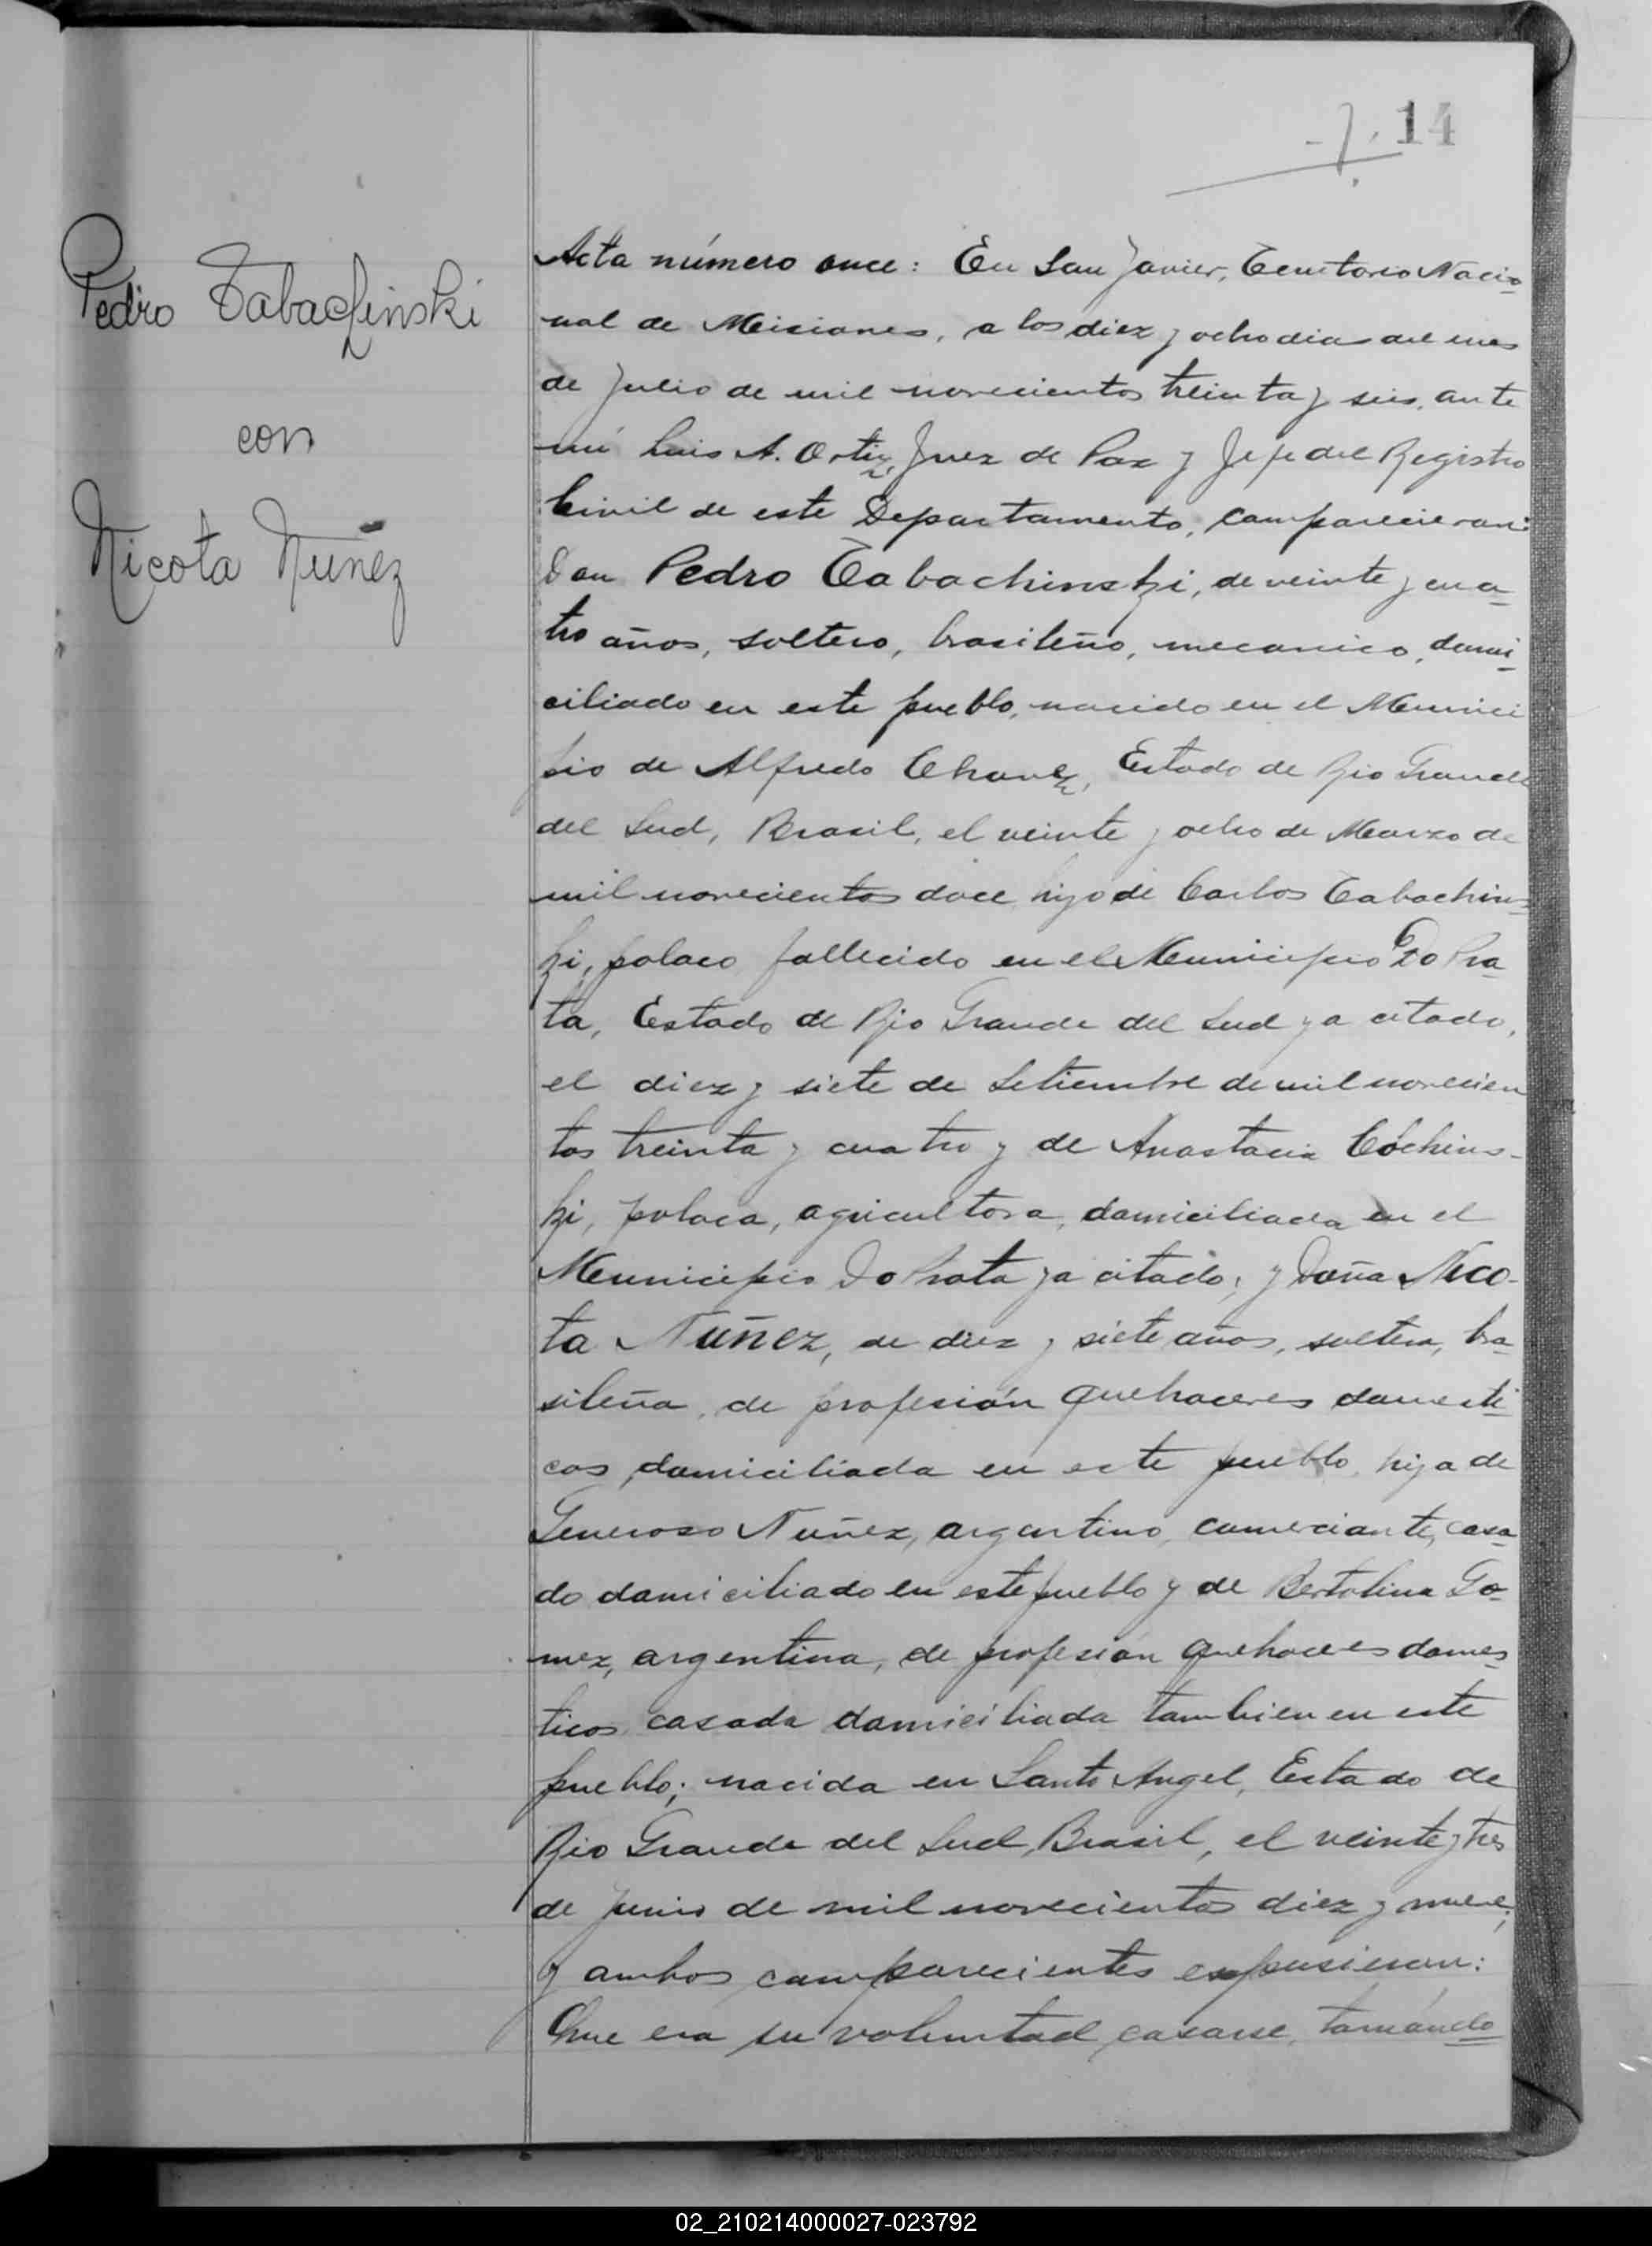 7. 14
Pedro Tabachinski
con
Nicota Nuñez
Acta número once: En San Javier, Territorio Nacio
nal de Misiones, a los diez y ocho dias del mes
de Julio de mil novecientos treinta y seis, ante
mi Luis A. Ortiz, Juez de Paz y Jefe del Registro
Civil de este Departamento, comparecieron:
Don Pedro Tabachinski, de veinte y cua-
tro años, soltero, brasileño, mecanico, domi-
ciliado en este pueblo, nacido en el Munici
pio de Alfredo Chavez, Estado de Rio Grande
del Sud, Brasil, el veinte y ocho de Marzo de
mil novecientos doce, hijo de Carlos Tabachins-
ki, polaco fallecido en el Municipio Do Pra-
ta, Estado de Rio Grande del Sud ya citado,
el diez y siete de Setiembre de mil novecien
tos treinta y cuatro y de Anastacia Cóchins-
ki, polaca, agricultora, domiciliada en el
Municipio Do Prata ya citado; y Doña Nico-
ta Nuñez, de diez y siete años, soltera, bra-
sileña, de profesión quehaceres domesti-
cos, domiciliada en este pueblo, hija de
Generoso Nuñez, argentino, comerciante, casa-
do domiciliado en este pueblo y de Bertolina Go-
mez, argentina, de profesion quehaceres domes-
ticos, casada domiciliada tambien en este
pueblo; nacida en Santo Angel, Estado de
Rio Grande del Sud, Brasil, el veinte y tres
de Junio de mil novecientos diez y nueve;
y ambos comparecientes expusieron:
Que era su voluntad casarse, tomándo
02_210214000027-023792